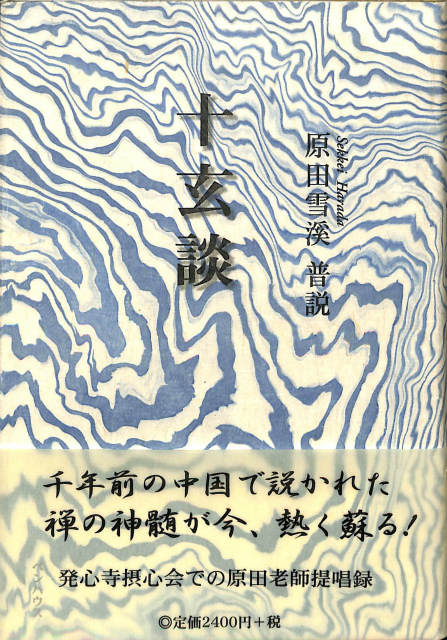 十玄談
原田雪溪 普説
Sekkei Harada
千年前の中国で説かれた
禅の神髄が今、熱く蘇る!
発心寺摂心会での原田老師提唱録
ペンハウス
◎定価2400円+税